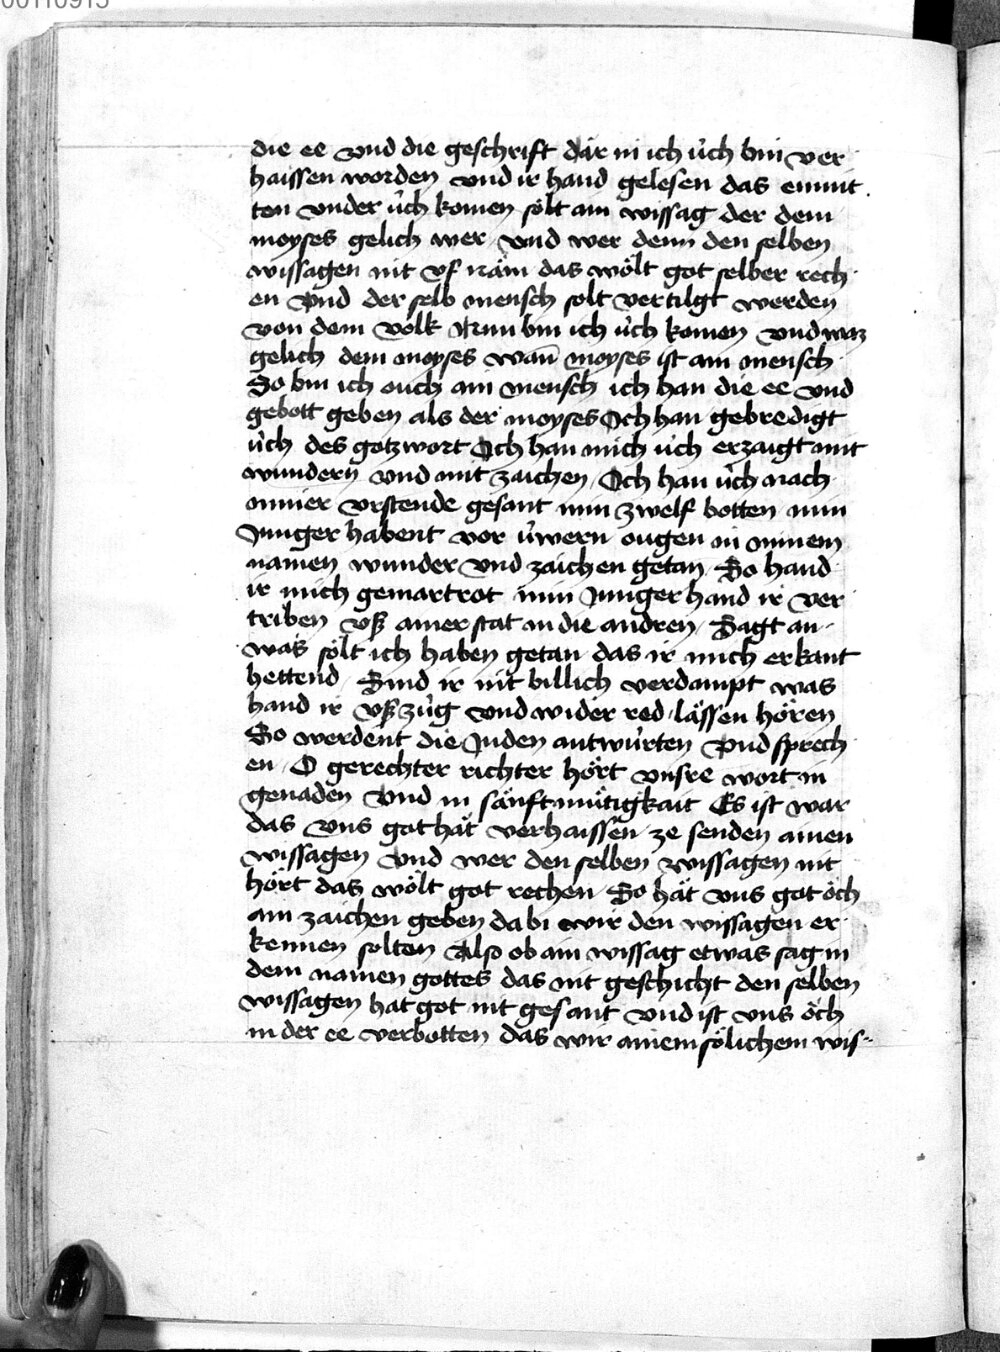 00110915
die ee vnd die geschrift dar in ich üch bin ver
haissen worden vnd ir hand gelesen das enmit
ten vnder üch komen sölt ain wissag der dem
moyses gelich wer vnd wer denn den selben
wissagen nit vf näm das wölt got selber rech
en vnd der selb mensch solt vertilgt werden
von dem volk Nun bin ich üch komen vnd waz
gelich dem moyses wan̄ moyses ist ain mensch
So bin ich ouch ain mensch ich han die ee vnd
gebott geben als der moyses Och han gebredigt
üch des gotz wort Och han mich üch erzaigt mit
wundern vnd mit zaichen Och han üch nach
miner vrstende gesant min zwelf botten min
Junger habent vor üwern ougen in minem
namen wunder vnd zaichen getan So hand
ir mich gemartrot min Junger hand ir ver
triben vß ainer stat in die andren Sagt an
was sölt ich haben getan das ir mich erkant
hettend Sind ir nit billich verdampt was
hand ir vßzüg vnd wider red lässen hören
So werdent die Juden antwürten vnd sprech
en O gerechter richter hört vnsre wort in
genaden vnd in sänftmütigkait Es ist war
das vns got hät verhaissen ze senden ainen
wissagen vnd wer den selben wissagen nit
hört das wölt got rechen So hät vns got öch
ain zaichen geben da bi wir den wissagen er
kennen solten Also ob ain wissag etwas sag in
dem namen gottes das nit geschicht den selben
wissagen hat got nit gesant vnd ist vns öch
in der ee verbotten das wir ainem sölichem wis